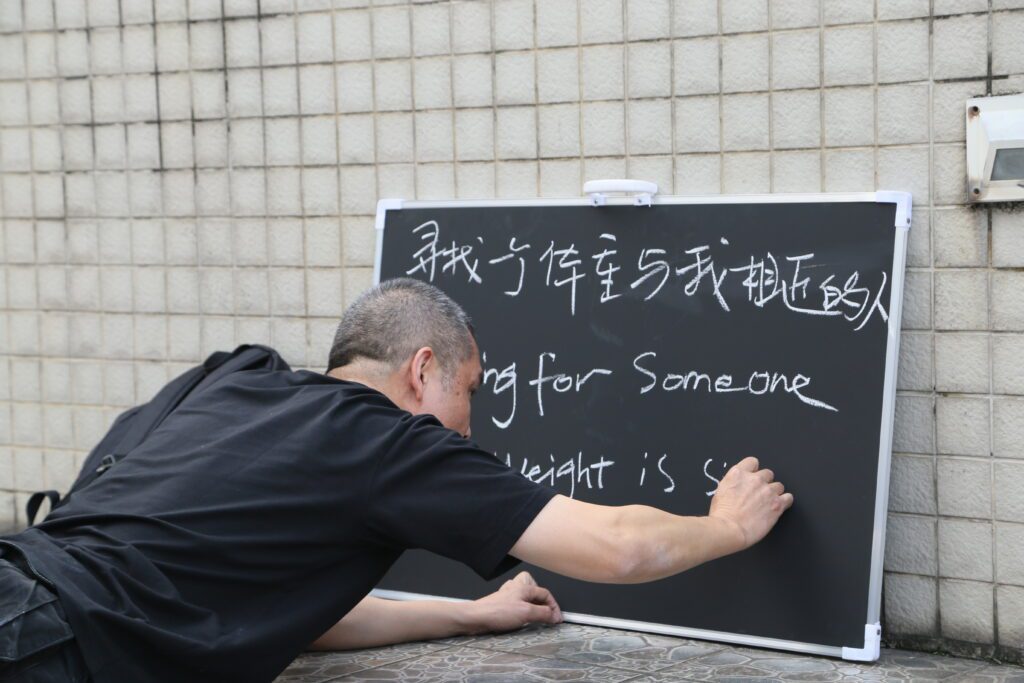 寻找个体重与我相近的人
ing for Someone
Weight is si